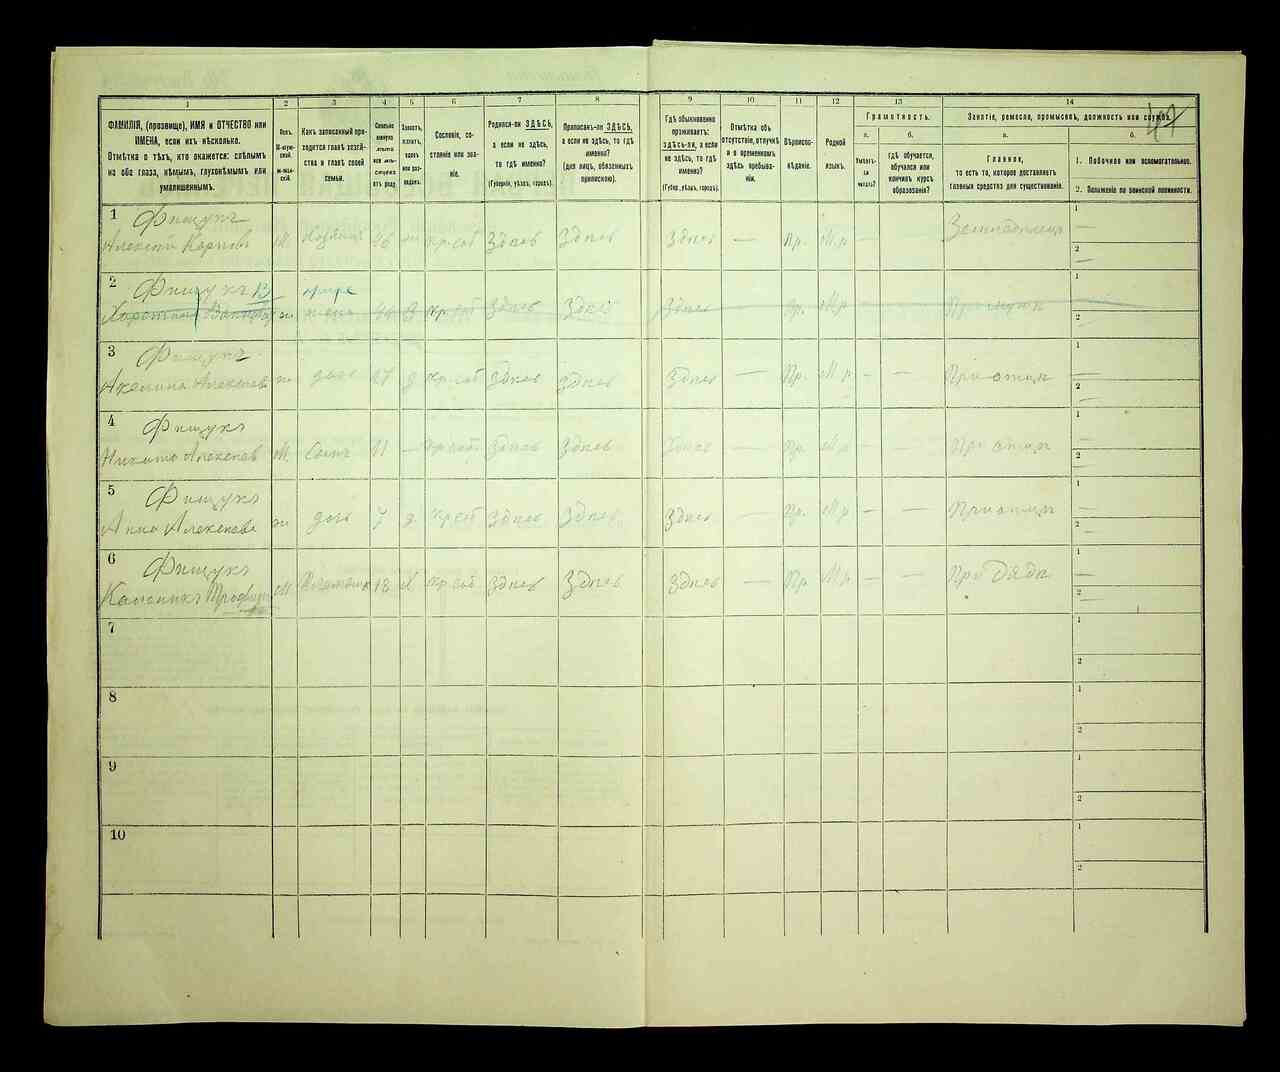 1
2
3
4
5
6
7
8
9
10
11
12
13
14
47
ФАМИЛІЯ, (прозвище), ИМЯ и ОТЧЕСТВО или
ИМЕНА, если ихъ нѣсколько.
Отмѣтка о тѣхъ, кто окажется: слѣпымъ
на оба глаза, нѣмымъ, глухонѣмымъ или
умалишеннымъ.
Полъ.
М-мужской.
Ж-женскій.
Какъ записанный приходится главѣ хозяйства и главѣ своей
семьи.
Сколько
минуло
лѣтъ
или мѣсяцевъ
отъ роду.
Холостъ,
женатъ,
вдовъ
или разведенъ.
Сословіе, состояніе или званіе.
Родился-ли ЗДѢСЬ,
а если не здѣсь,
то гдѣ именно?
(Губернія, уѣздъ, городъ).
Приписанъ-ли ЗДѢСЬ,
а если не здѣсь, то гдѣ
именно?
(для лицъ, обязанныхъ
припискою).
Гдѣ обыкновенно
проживаетъ:
здѣсь-ли, а если
не здѣсь, то гдѣ
именно?
(Губер., уѣздъ, городъ).
Отмѣтка объ
отсутствіи, отлучкѣ
и о временномъ
здѣсь пребываніи.
Вѣроисповѣданіе.
Родной
языкъ.
Грамотность.
а.
Умѣетъ-
ли
читать?
б.
Гдѣ обучается,
обучался или
кончилъ курсъ
образованія?
Занятіе, ремесло, промыселъ, должность или служба.
а.
Главное,
то есть то, которое доставляетъ
главныя средства для существованія.
б.
1. Побочное или вспомогательное.
2. Положеніе по воинской повинности.
1 Фищукъ
Алексѣй Карповъ М. Хозяинъ 46 кр. соб Здѣсь Здѣсь Здѣсь — Пр. М.р — Земледѣлецъ
2 Фищукъ 13
ж жена 40 кр. соб Здѣсь Здѣсь Здѣсь Пр. М.р При мужѣ
3 Фищукъ
Акелина Алексѣев ж дочь 17 д кр. соб Здѣсь Здѣсь Здѣсь — Пр. М.р — — При отцѣ
4 Фищукъ
Никита Алексѣев М. Сынъ 11 — кр. соб Здѣсь Здѣсь Здѣсь — Пр. М.р — — При отцѣ
5 Фищукъ
Анна Алексѣева ж дочь 7 д кр. соб Здѣсь Здѣсь Здѣсь — Пр. М.р — — При отцѣ
6 Фищукъ
М 18 Х кр. соб Здѣсь Здѣсь Здѣсь — Пр М.р — — При Дядѣ
7
8
9
10